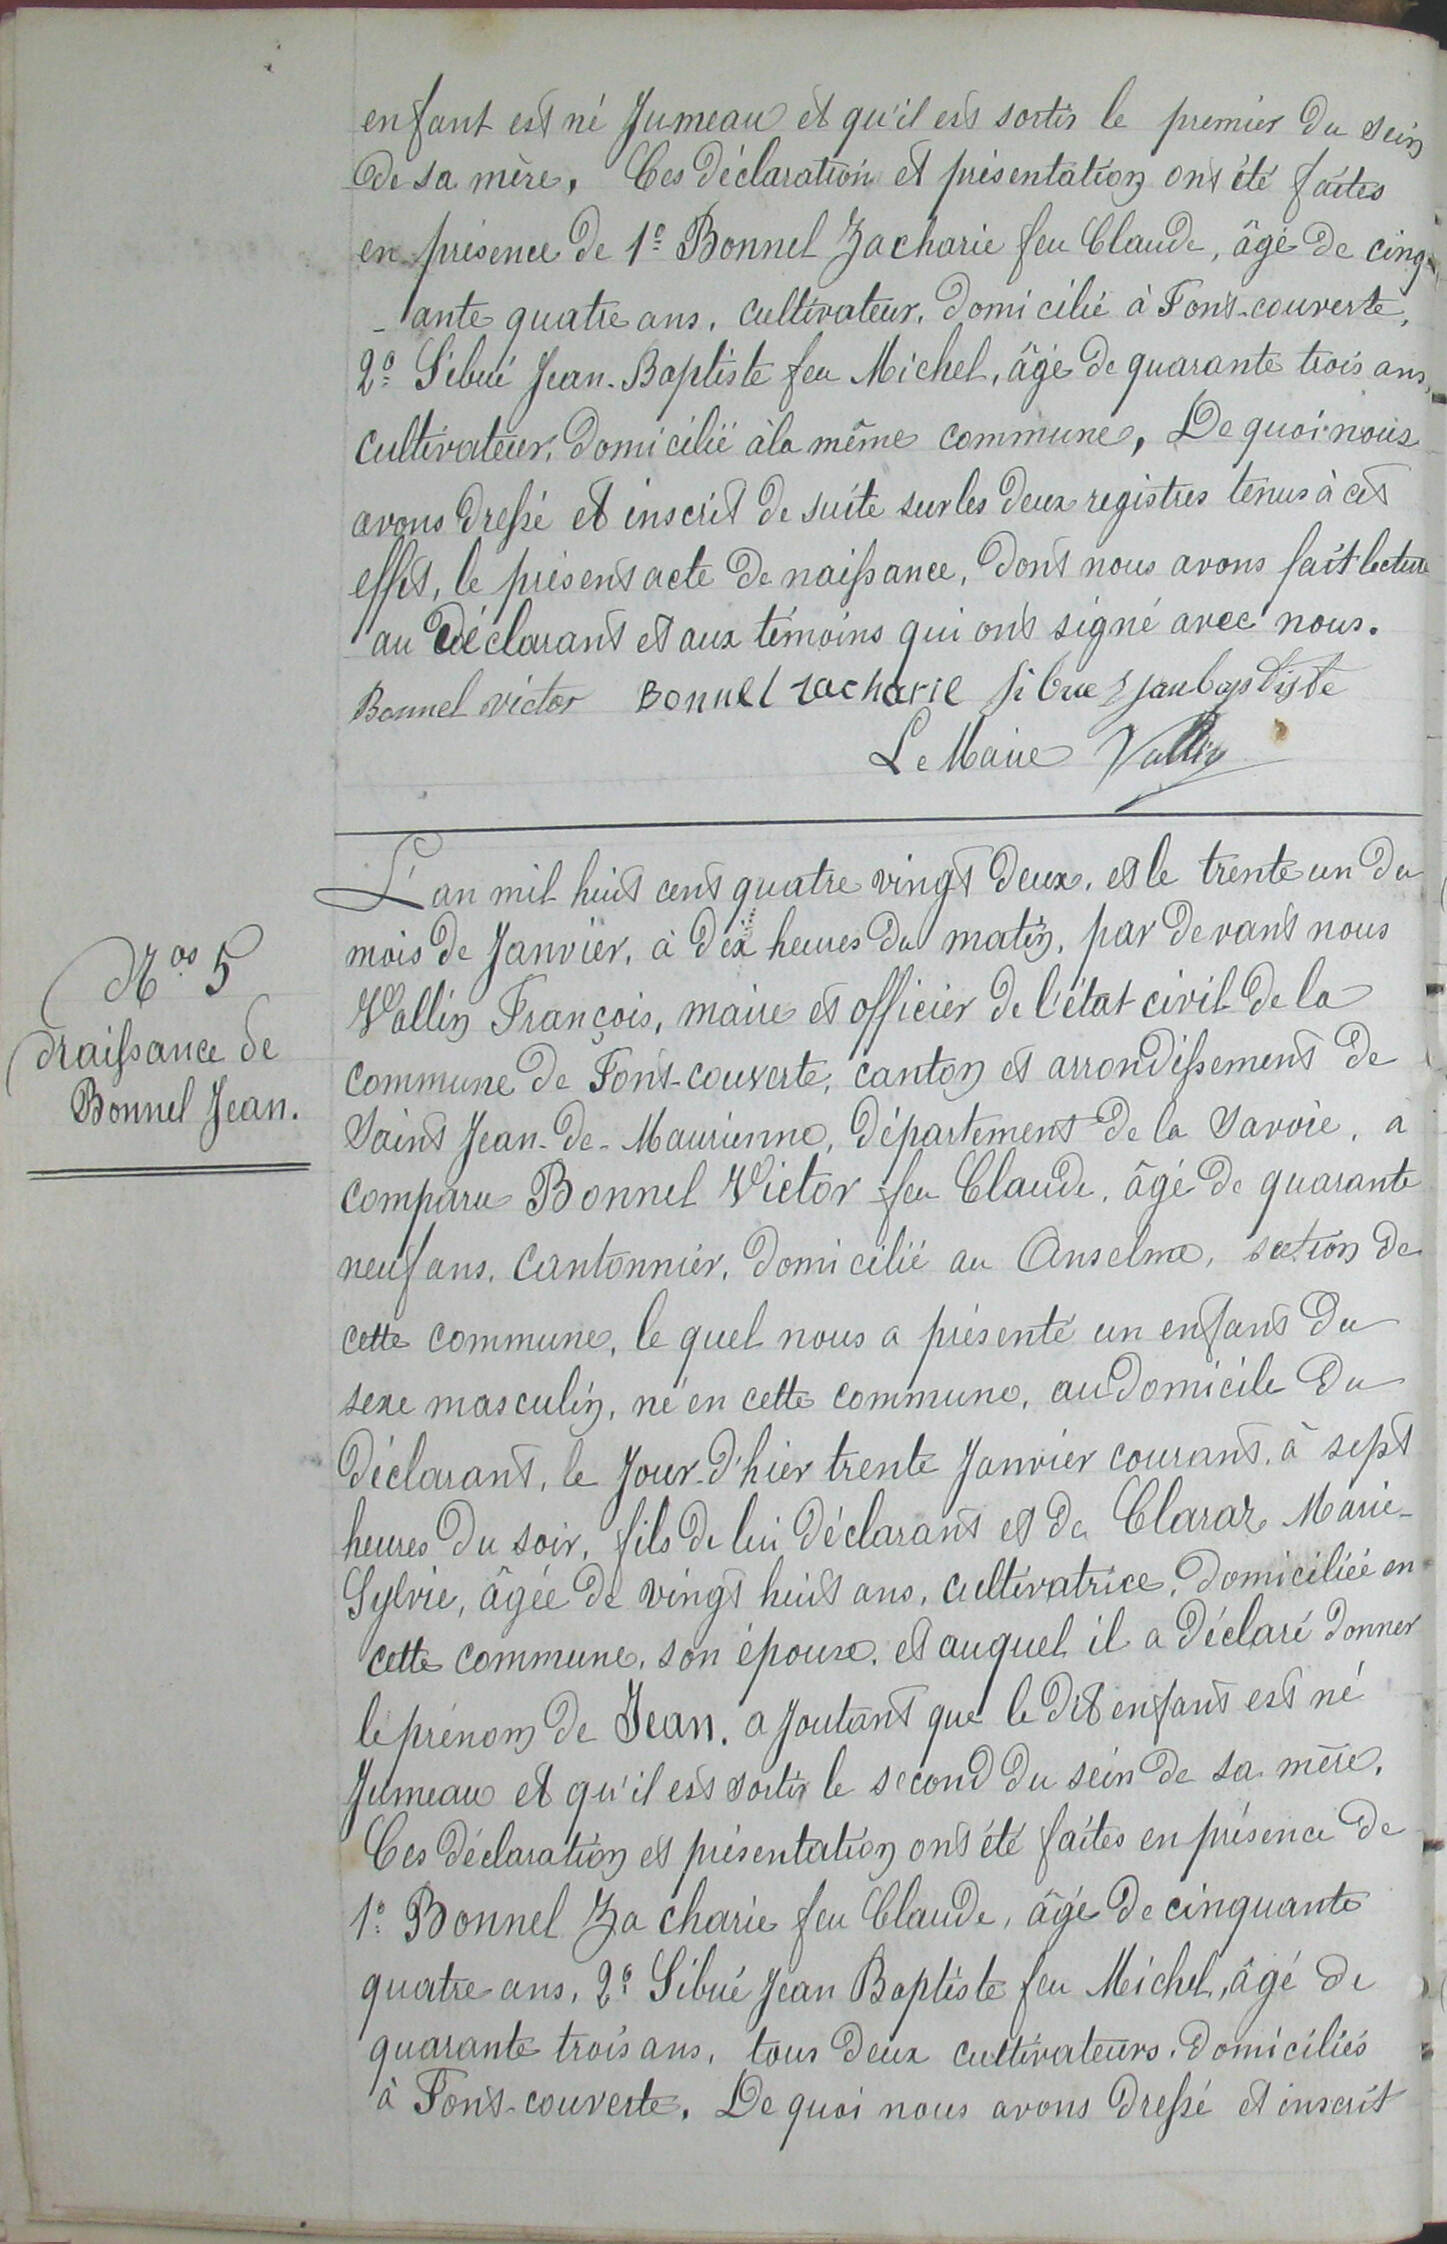 enfant est né Jumeau et qu'il est sortir le premier du sein
de sa mère. Ces déclaration et présentation ont été faites
en présence de 1º Bonnel Zacharie feu Claude, âgé de cinqu
-ante quatre ans, cultivateur, domicilié à Font-couverte,
2º Sibué Jean-Baptiste feu Michel, âgé de quarante trois ans,
cultivateur, domicilié à la même commune, De quoi nous
avons dressé et inscrit de suite sur les deux registres tenus à cet
effet, le présent acte de naissance, dont nous avons fait lecture
au déclarant et aux témoins qui ont signé avec nous.
Bonnel victor Bonnel zacharie sibue jan baptiste
Le Maire Vallin
L'an mil huit cent quatre vingt deux, et le trente un du
mois de Janvier, à dix heures du matin, par devant nous
Vallin François, maire et officier de l'état civil de la
commune de Font-couverte, canton et arrondissement de
Saint Jean-de-Maurienne, département de la Savoie, a
comparu Bonnel Victor feu Claude, âgé de quarante
neuf ans, cantonnier, domicilié au Anselme, section de
cette commune, le quel nous a présenté un enfant du
sexe masculin, né en cette commune, au domicile du
déclarant, le Jour-d'hier trente Janvier courant, à sept
heures du soir, fils de lui déclarant et de Claraz Marie-
Sylvie, âgée de vingt huit ans, cultivatrice, domiciliée en
cette commune, son épouse, et auquel il a déclaré donner
le prénom de Jean, ajoutant que le dit enfant est né
Jumeau et qu'il est sortir le second du sein de sa mère.
Ces déclaration et présentation ont été faites en présence de
1º Bonnel Zacharie feu Claude, âgé de cinquante
quatre ans, 2º Sibué Jean Baptiste feu Michel, âgé de
quarante trois ans, tous deux cultivateurs, domiciliés
à Font-couverte. De quoi nous avons dressé et inscrit
Nos 5
Naissance de
Bonnel Jean.